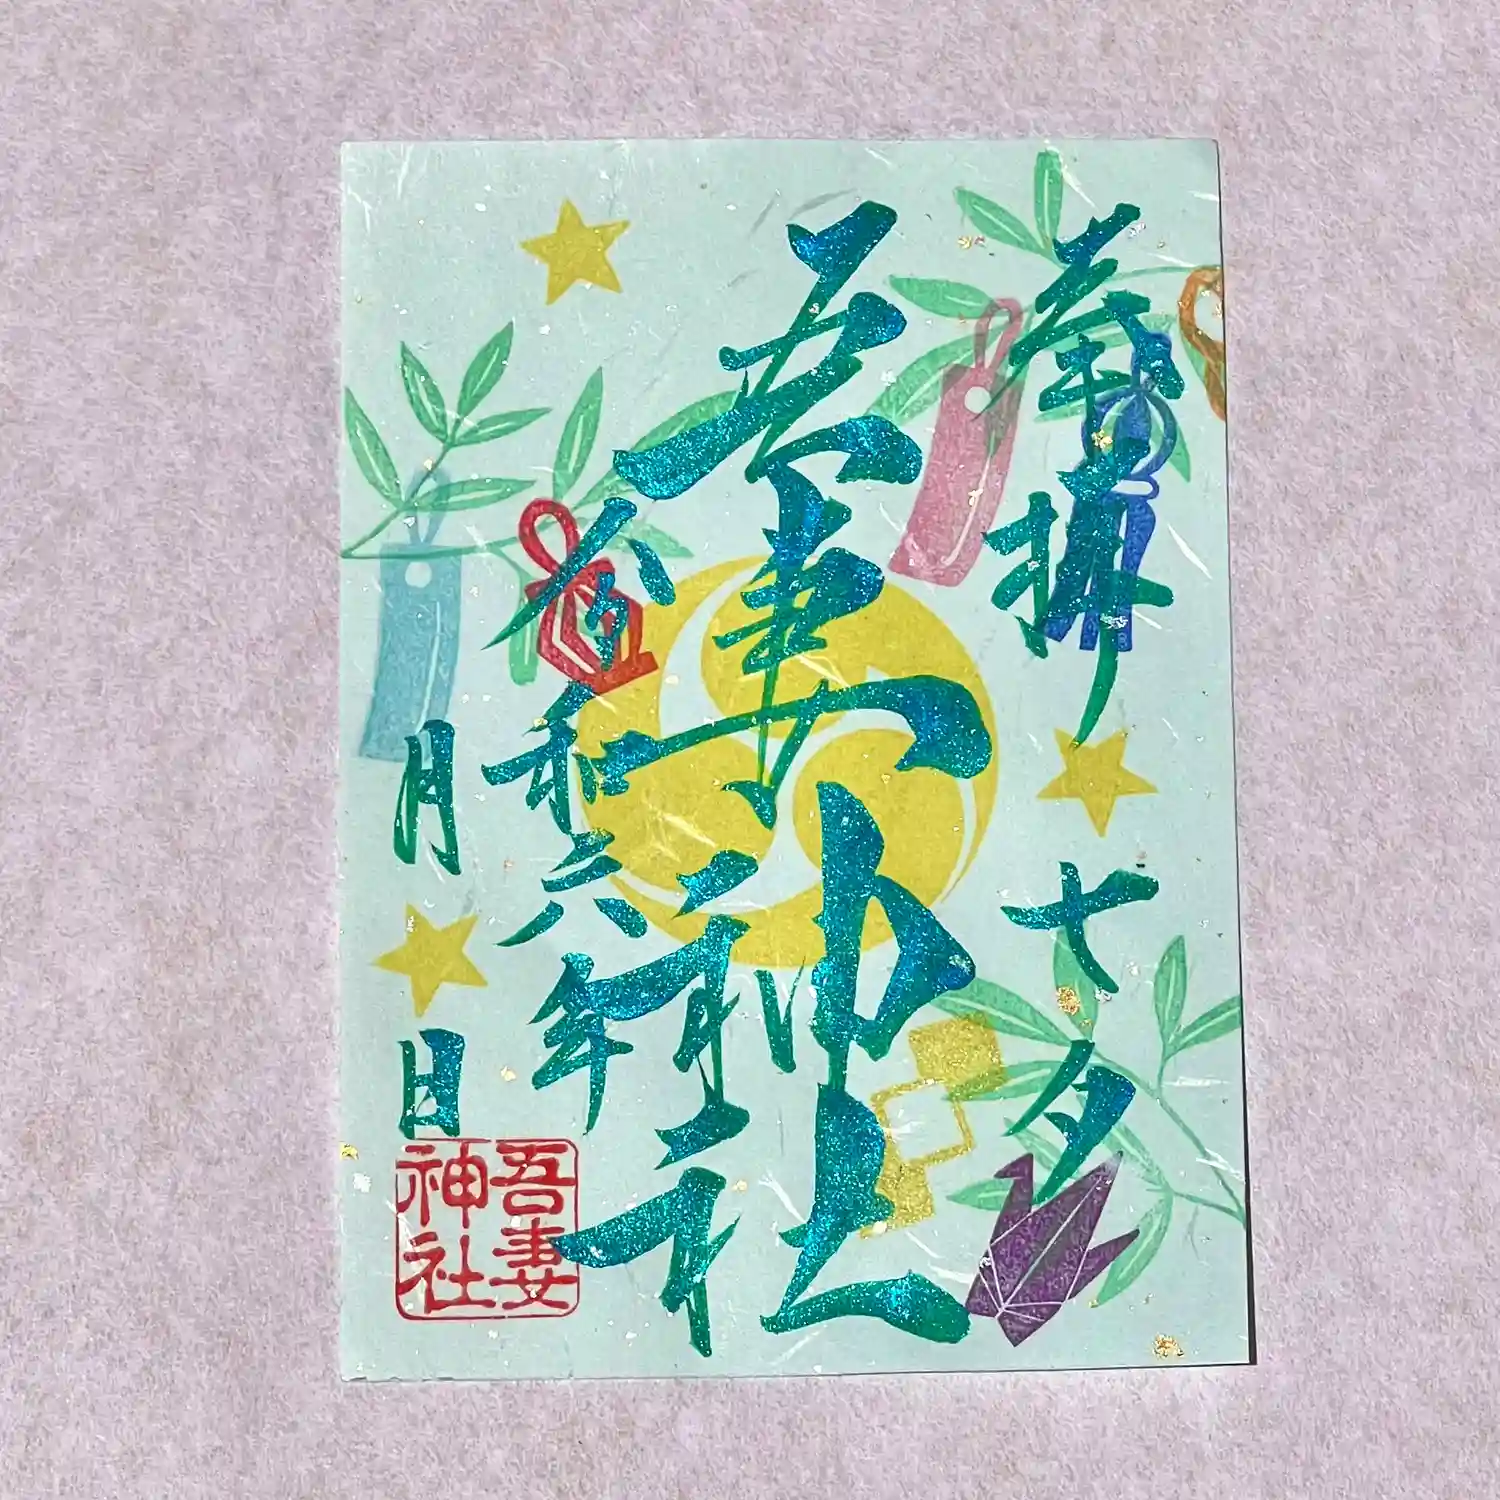 奉拝
七夕
吾妻神社
令和六年
月
日
吾妻
神社